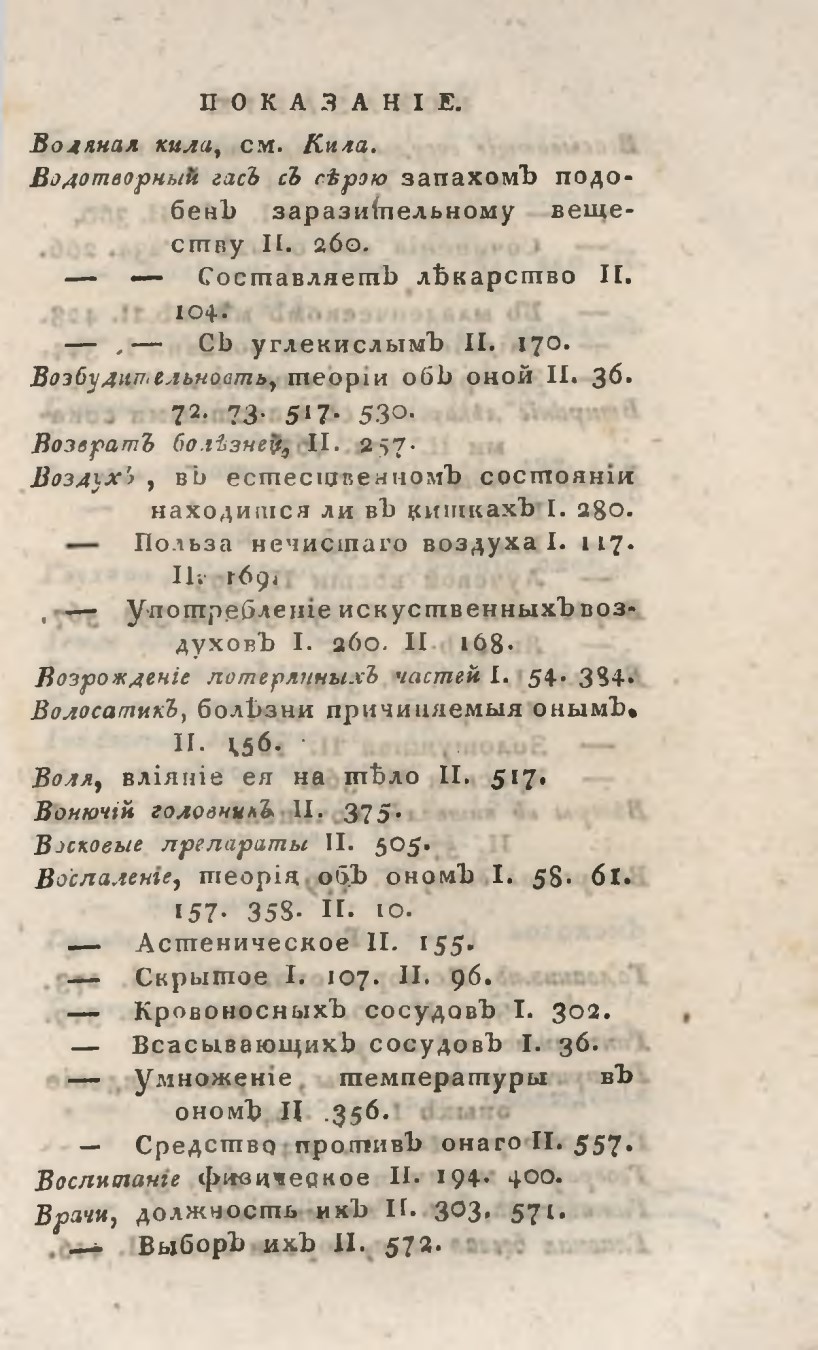 ПОКАЗАНІЕ.
Водяная кила, см. Кила.
Водотворный гасъ съ сѣрою запахомъ подо-
бенъ заразительному веще-
ству II. 260.
— — Составляетъ лѣкарство II.
104.
— — Съ углекислымъ II. 170.
Возбудительность, теоріи объ оной II. 36.
72. 73. 517. 530.
Возвратъ болѣзней, II. 257.
Воздухъ, въ естественномъ состояніи
находится ли въ кишкахъ I. 280.
— Польза нечистаго воздуха I. 117.
II. 169.
— Употребленіе искуственныхъ воз-
духовъ I. 260. II 168.
Возрожденіе потерянныхъ частей I. 54. 384.
Волосатикъ, болѣзни причиняемыя онымъ.
II. 156.
Воля, вліяніе ея на тѣло II. 517.
Вонючій головникъ II. 375.
Восковые препараты II. 505.
Воспаленіе, теорія объ ономъ I. 58. 61.
157. 358. II. 10.
— Астеническое II. 155.
— Скрытое I. 107. II. 96.
— Кровоносныхъ сосудовъ I. 302.
— Всасывающихъ сосудовъ I. 36.
— Умноженіе температуры въ
ономъ II .356.
— Средство противъ онаго II. 557.
Воспитаніе физическое II. 194. 400.
Врачи, должность ихъ II. 303. 571.
— Выборъ ихъ II. 572.